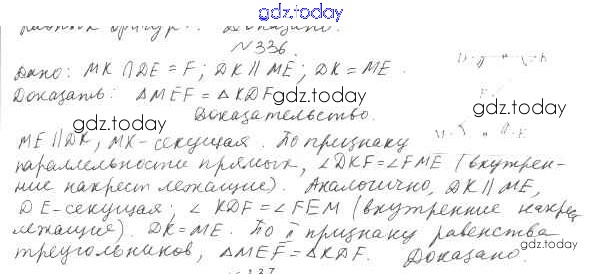 gdz.today
Доказано.
№336.
Дано: MK ∩ DE = F; DK ∥ ME; DK = ME.
Доказать: △MEF = △KDF gdz.today
gdz.today
Доказательство.
D K
ME ∥ DK, MK - секущая. По признаку
M F E
параллельности прямых, ∠DKF = ∠FME (внутрен-
ние накрест лежащие). Аналогично, DK ∥ ME,
DE - секущая; ∠KDF = ∠FEM (внутренние накрест
лежащие). DK = ME. По признаку равенства
gdz.today
треугольников, △MEF = △KDF. Доказано.
gdz.today
№337